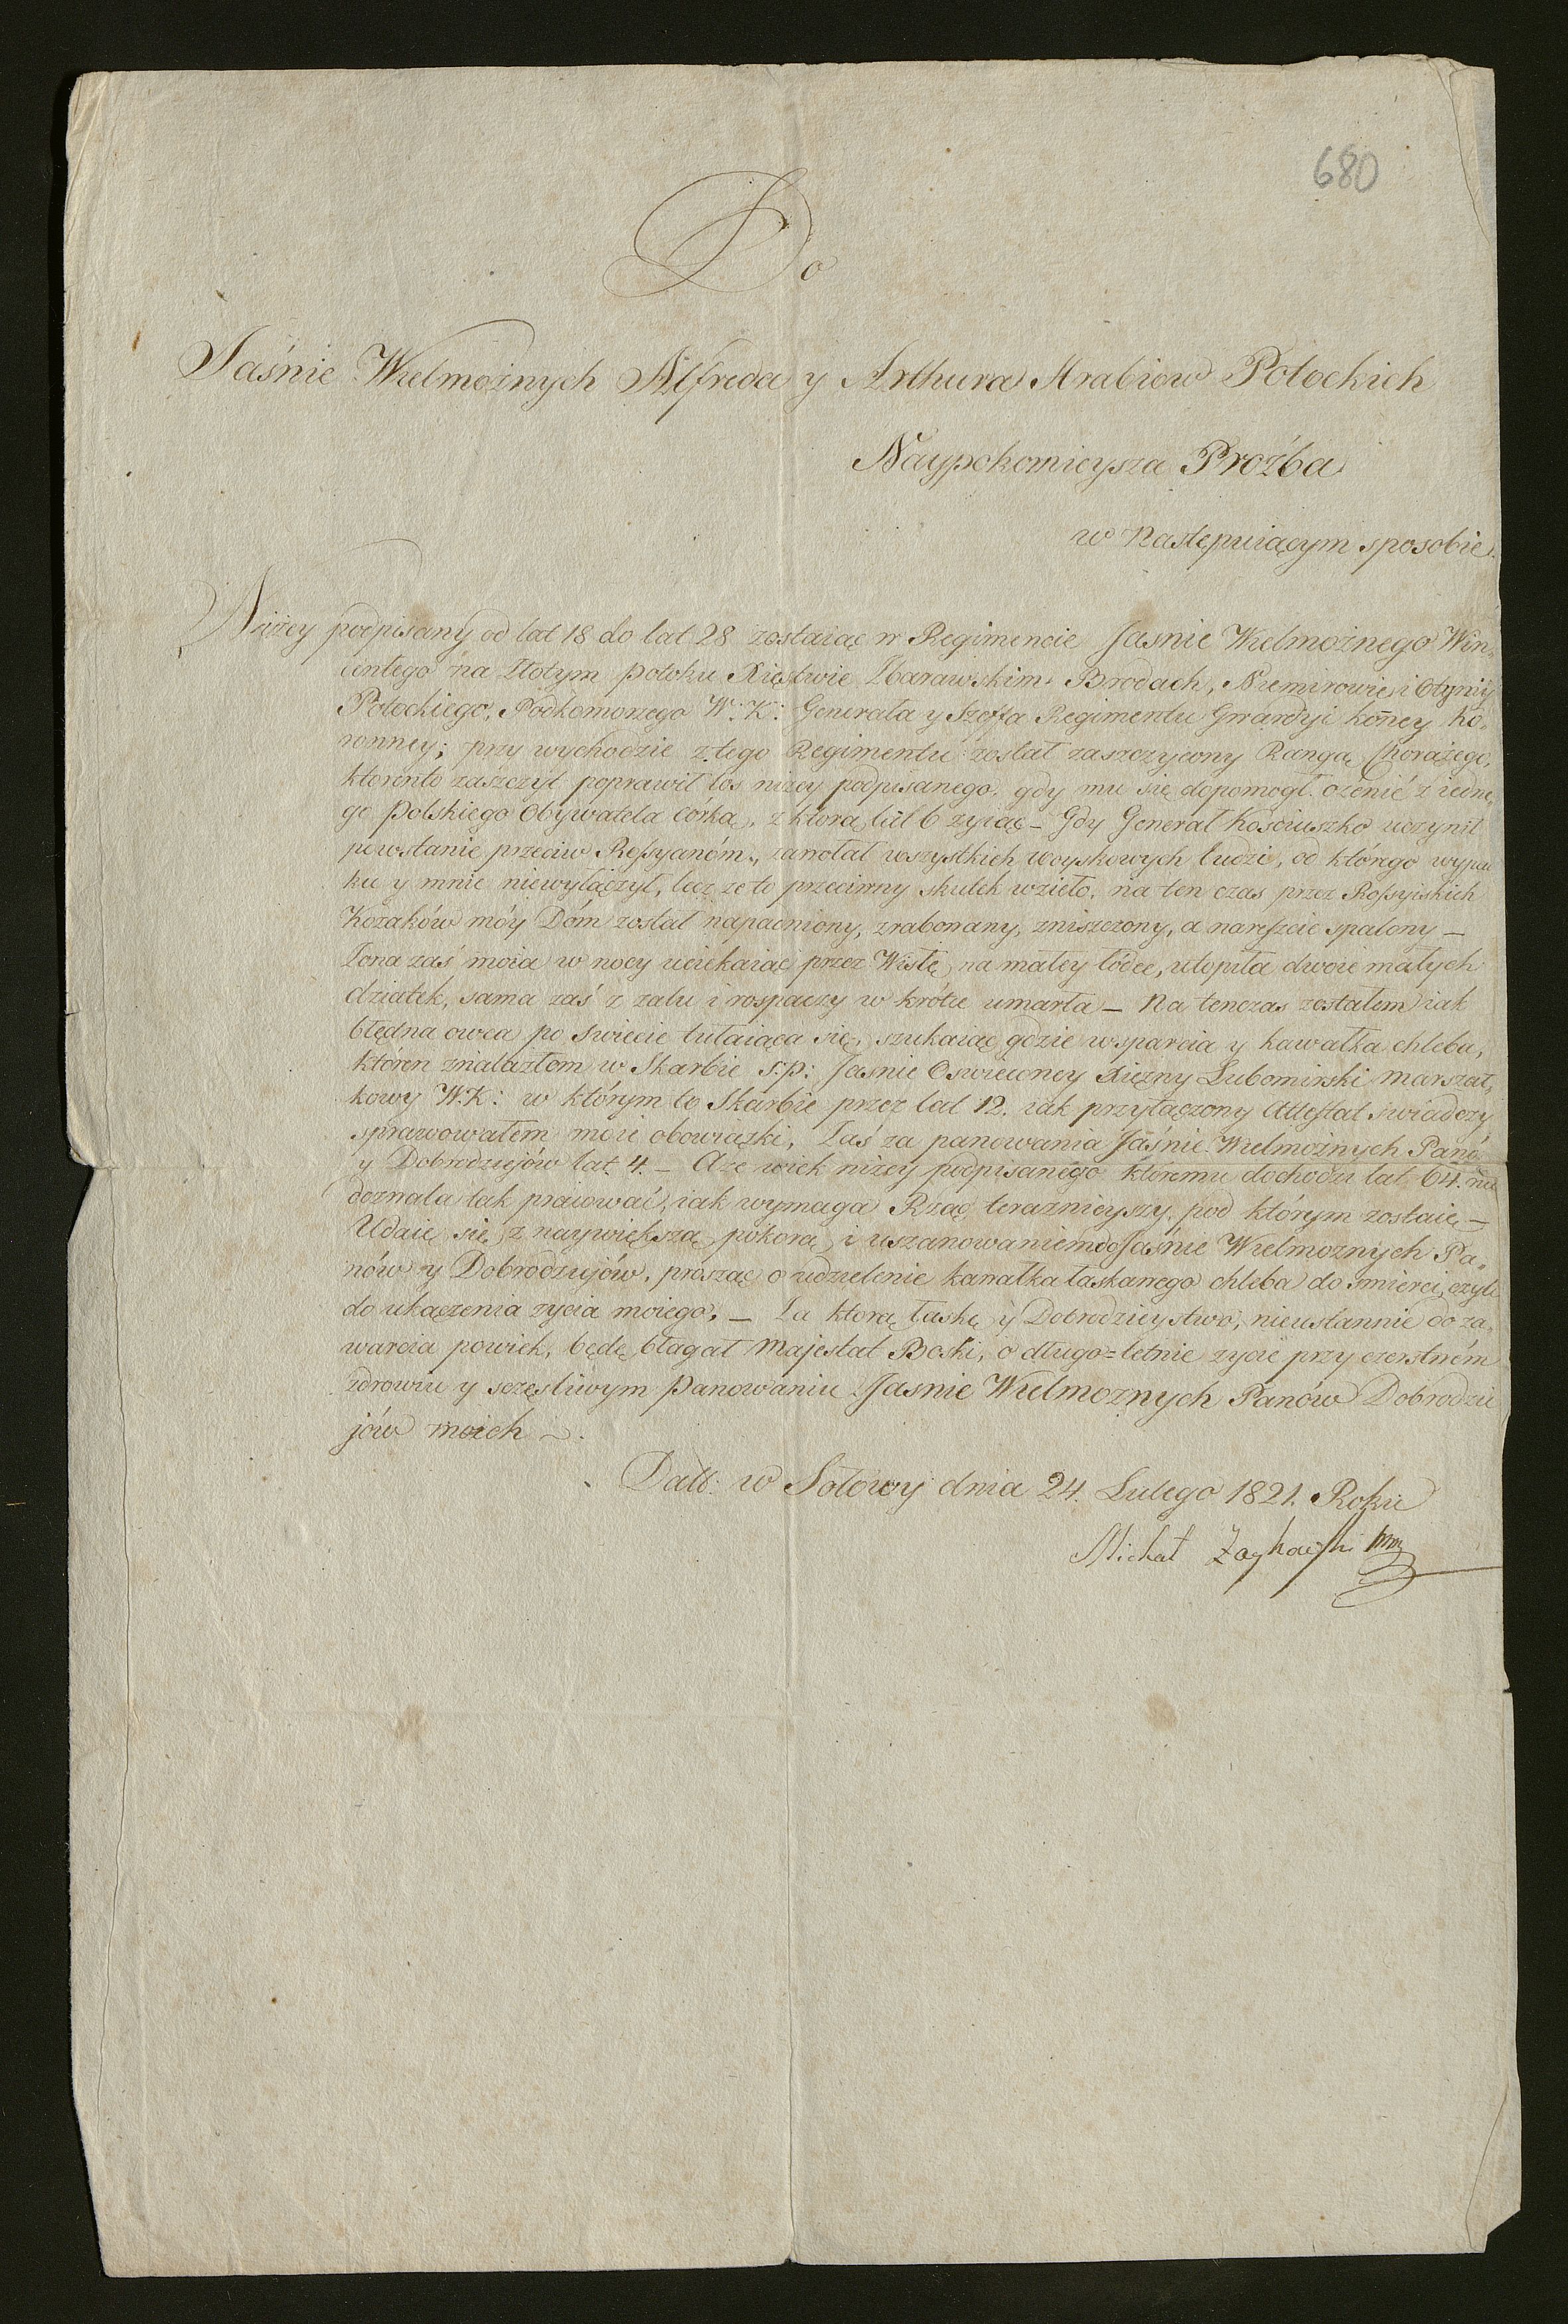 680
Do
Jaśnie Wielmożnych Alfreda y Arthura Hrabiow Potockich
Naypokornieysza Proźba
w Następuiącym sposobie.
Niżey podpisany od lat 18 do lat 28 zostaiąc w Regimencie Jasnie Wielmożnego Win„
centego na Złotym potoku Xięstwie Zbarawskim Brodach, Niemirowie i Otynij
Potockiego, Podkomorzego W: K: Generała y Szeffa Regimentu Gwardyi koñey Ko„
ronney; przy wychodzie z tego Regimentu został zaszczycony Rangą Chorążego,
ktorento zaszczyt poprawił los niżey podpisanego, gdy mu się dopomogł ożenić z iedne„
go Polskiego Obywatela córką, z ktorą lat 6 żyiąc – Gdy Generał Kościuszko uczynił
powstanie przeciw Rossyanóm, zawołał wszystkich woyskowych ludzi, od którego wypad
ku y mnie niewyłączył, lecz że to przeciwny skutek wzieło, na ten czas przez Rossyiskich
Kozaków móy Dóm został napadniony, zrabowany, zniszczony, a nareszcie spalony –
Żona zaś moia w nocy uciekaiąc przez Wisłę na małey łódce, utopiła dwoie małych
dziatek, sama zaś z żalu i rospaczy w krótce umarła – Na tenczas zostałem iak
błędna owca po swiecie tułaiąca się, szukaiąc gdzie wsparcia y kawałka chleba,
któren znalazłem w Skarbie s.p: Jasnie Oswieconey Xiężny Lubomirski Marszał„
kowy W.K: w którym to Skarbie przez lat 12. iak przyłączony Attestat swiadczy
sprawowałem moie obowiązki, Zaś za panowania Jaśnie Wielmożnych Panów
y Dobrodziejów lat 4. – A że wiek niżey podpisanego któremu dochodzi lat 64. nie
doznala tak praiować, iak wymaga Rząd teraznieyszy, pod którym zostaię –
Udaię się z naywiększą pokorą i uszanowaniem do Jaśnie Wielmożnych Pa„
nów y Dobrodziejów, prosząc o udzielenie kawałka łaskawego chleba do smierci, czyli
do ukączenia zycia moiego. – Za ktorą łaskę y Dobrodzieystwo, nieustannie do za„
warcia powiek, będę błagał Majestat Boski, o długo=letnie zycie przy czerstwém
zdrowiu y sczęsliwym Panowaniu Jasnie Wielmoznych Panów Dobrodzie
jów moich –.
Datt: w Sołowy dnia 24. Lutego 1821. Roku
Michał